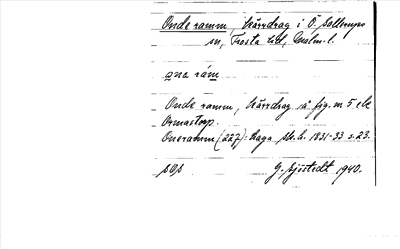 Onde ramm, kärrdrag i Ö. Sallerups
sn, Frosta hd, Malm. l.
ɑna rám
Onde ramm, kärrdrag å fig. m 5 ek
Ormastorp.
Oneramm (227): Haga sk. h. 1831-33 s. 23.
sOp G. Sjöstedt 1940.